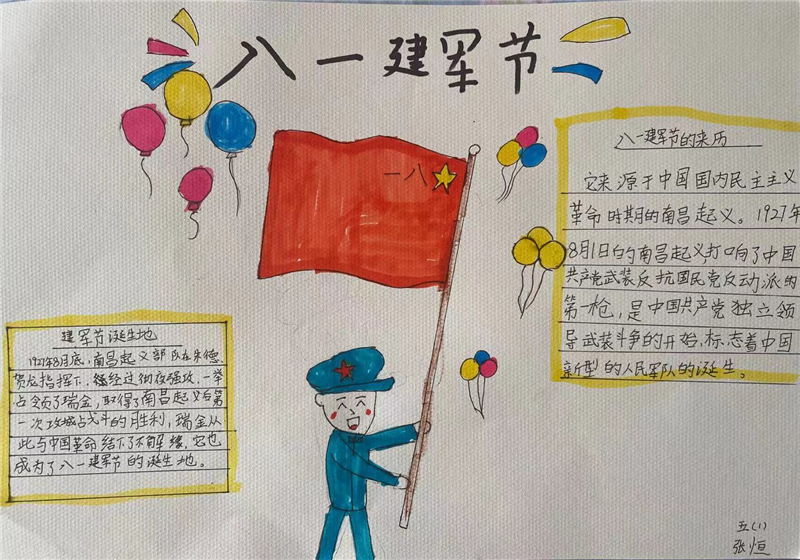 八一建军节
一八
八一建军节的来历
它来源于中国国内民主主义
革命时期的南昌起义。1927年
8月1日的南昌起义打响了中国
共产党武装反抗国民党反动派的
第一枪,是中国共产党独立领
导武装斗争的开始,标志着中国
新型的人民军队的诞生。
建军节诞生地
1927年8月底,南昌起义部队在朱德、
贺龙指挥下,经过彻夜强攻,一举
占领了瑞金,取得了南昌起义后第
一次攻城占战斗的胜利,瑞金从
此与中国革命结下了不解缘,它也
成为了八一建军节的诞生地。
五(1)
张恒